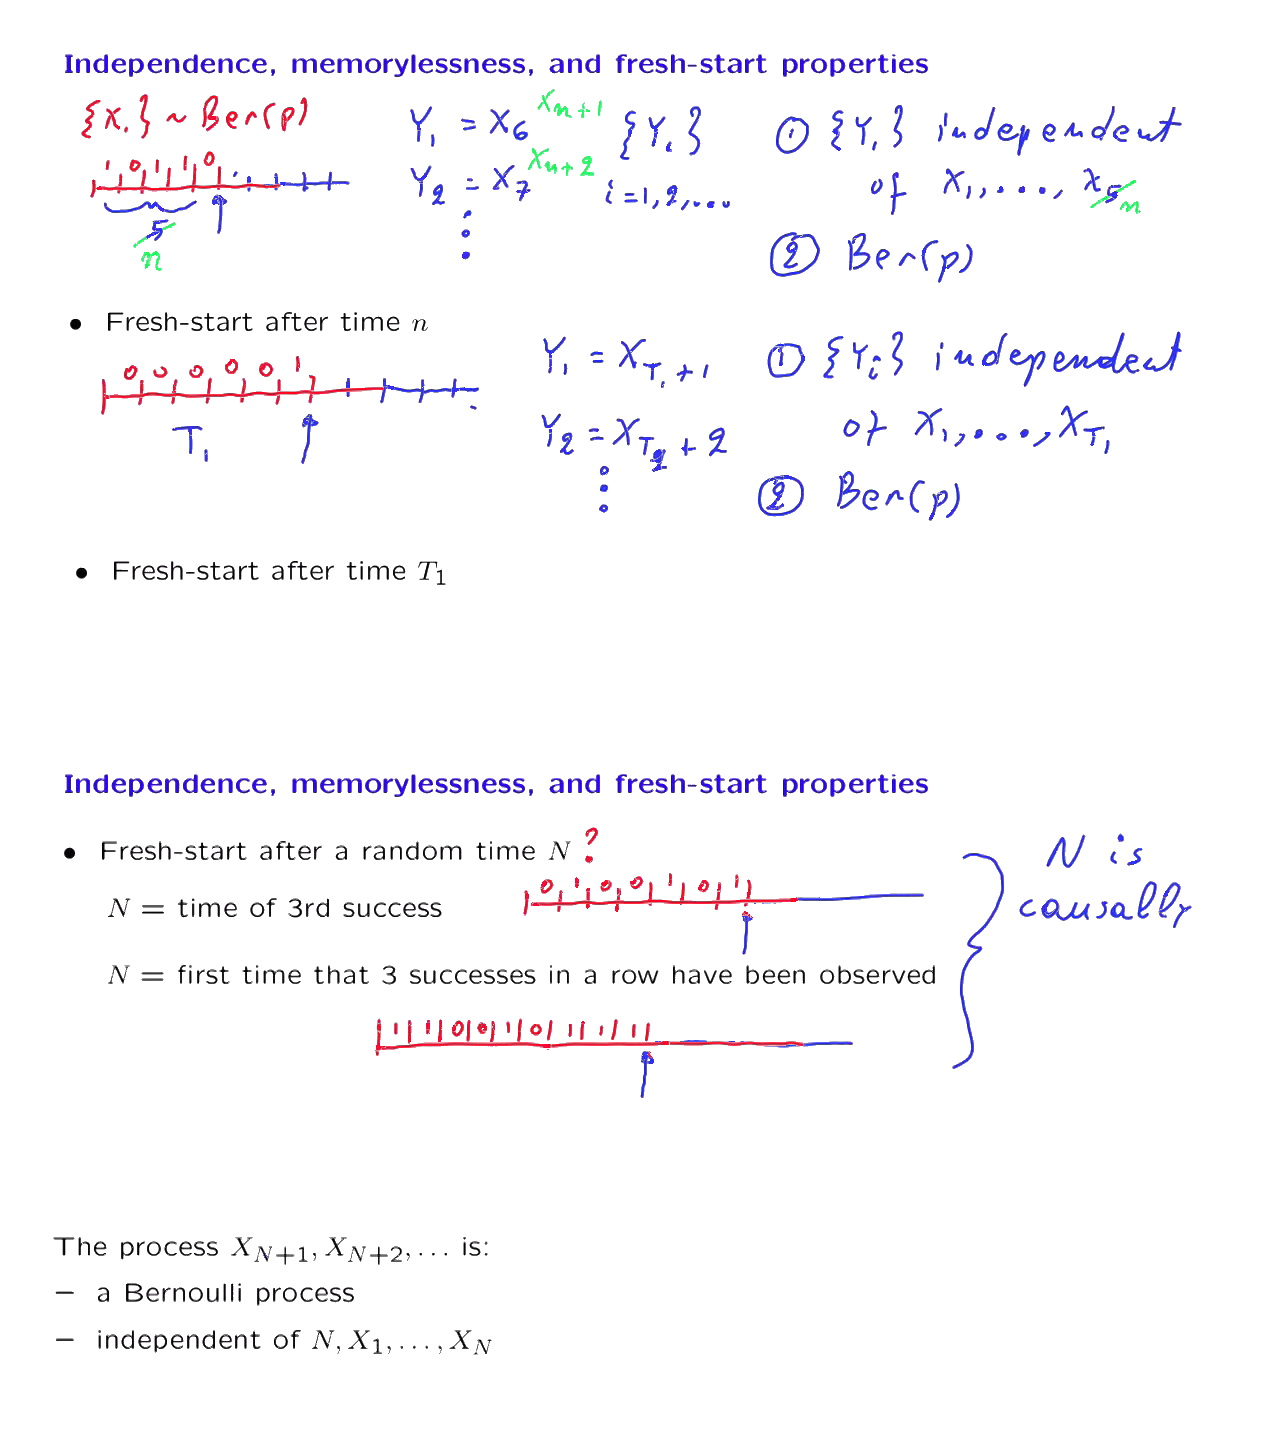 Independence, memorylessness, and fresh-start properties
{X.} ~ Ber(p)
1 0 1 1 0
5 n
Y1 = X6 Xn+1
Y2 = X7 Xn+2
{Yi}
i=1,2,...
① {Yi} independent
of X1,..., X5 n
② Ber(p)
• Fresh-start after time n
0 0 0 0 0 1
T1
Y1 = XT1+1
Y2 = XT2+2
① {Yi} independent
of X1,...,XT1
② Ber(p)
• Fresh-start after time T1
Independence, memorylessness, and fresh-start properties
• Fresh-start after a random time N ?
N = time of 3rd success
0 1 0 0 1 0 1
N is
causally
N = first time that 3 successes in a row have been observed
The process XN+1, XN+2, ... is:
– a Bernoulli process
– independent of N, X1, ..., XN